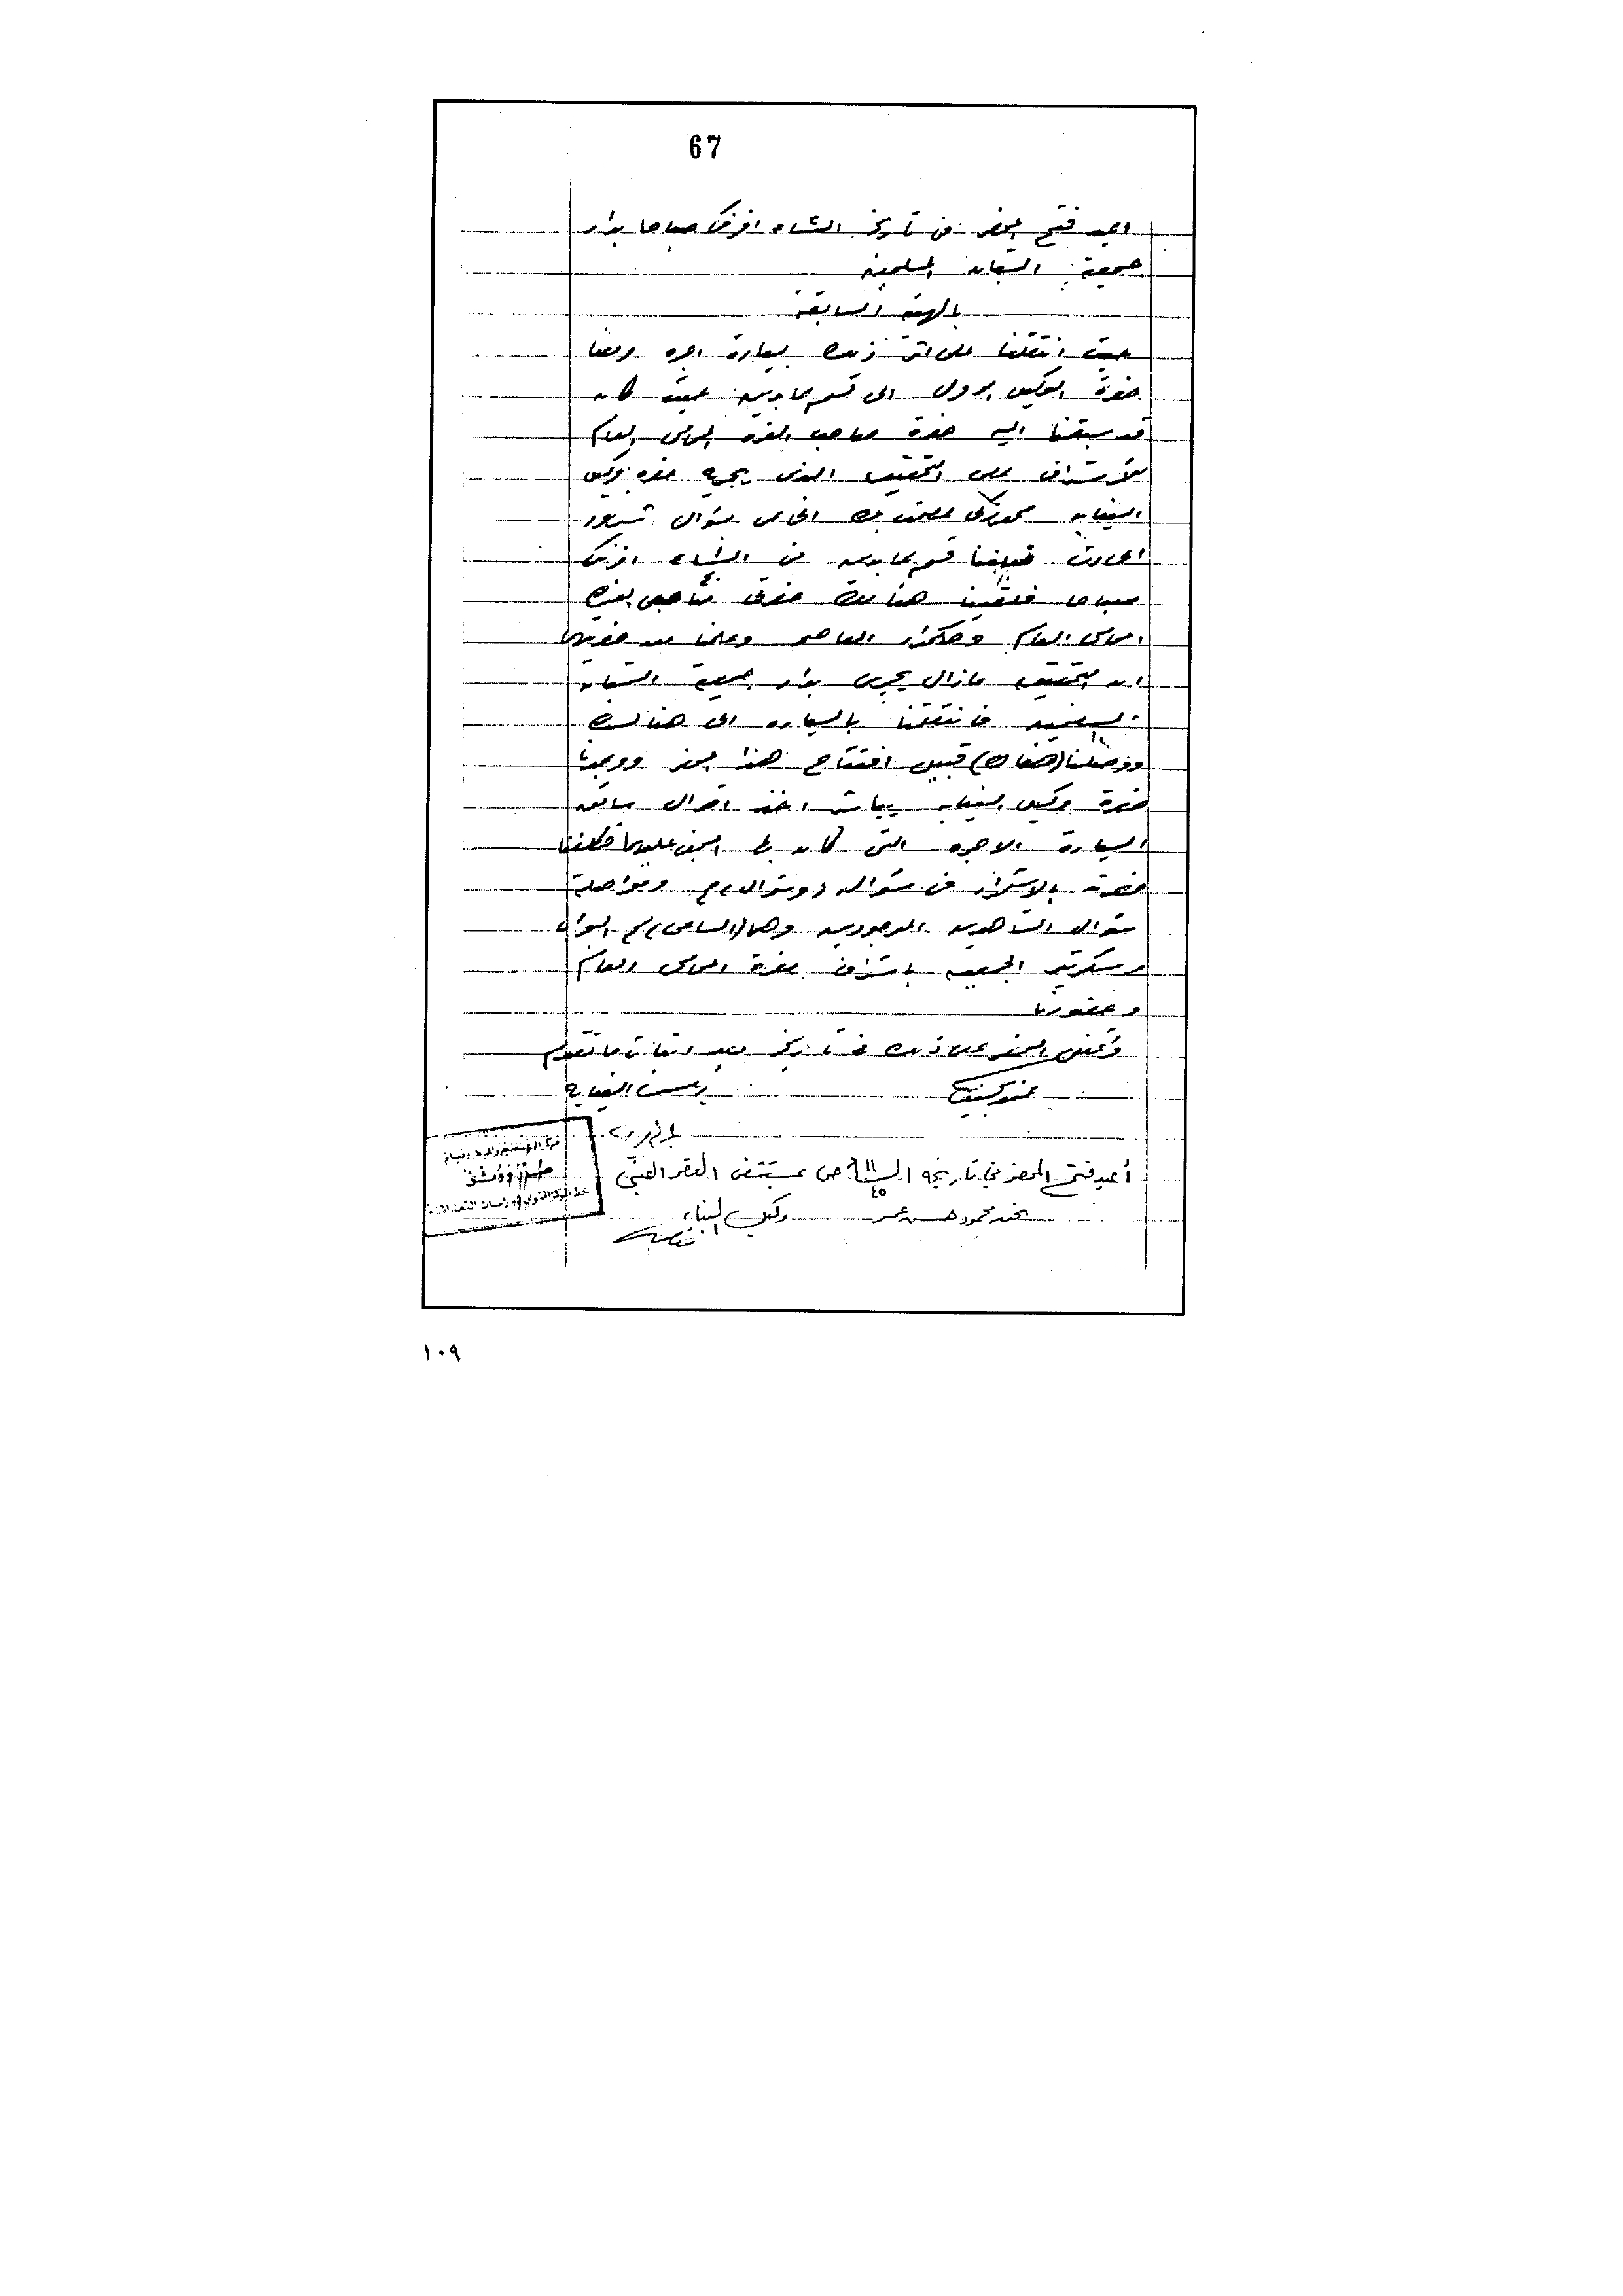 67
اعيد فتح المحضر فى تاريخه الساعه افرنكى صباحا بدار
جمعية الشبان المسلمين
بالهيئة السابقة
حيث انتقلنا على اثر ذلك بسيارة اجره ومعنا
حضرة الوكيل الاول الى قسم عابدين حيث كان
قد سبقنا اليه حضرة صاحب العزه المحامى العام
للاشراف على التحقيق الذى يجريه حضره وكيل
النيابه محمود الخاص بسؤال شهود
الحادث فبلغنا قسم عابدين فى الساعه افرنكى
صباحا فلقينا هنالك حضرتى صاحبى العزه
المحامى العام وحكمدار العاصمه وعلمنا من حضرتيهما
ان التحقيق مازال يجرى بدار جمعية الشبان
المسلمين فانتقلنا بالسياره الى هنالك
ووصلنا (هناك) قبيل افتتاح هذا المحضر ووجدنا
حضرة وكيل النيابه يباشر اخذ اقوال سائق
السيارة الاجره التى كان بها المجنى عليهما فكلفنا
حضرته بالاستمرار فى سؤاله ومواصلة
سؤال الشاهدين الموجودين وهما البواب
وسكرتير الجمعيه باشراف حضرة المحامى العام
وحضورنا
وقفل المحضر على ذلك فى تاريخه بعد اثبات ما تقدم
رئيس النيابه
أعيد فتح المحضر فى تاريخه الساعة ١١ ٤٥ ص بمستشفى القصر العينى
نحن محمود حسن عمر وكيل النيابه
١٠٩